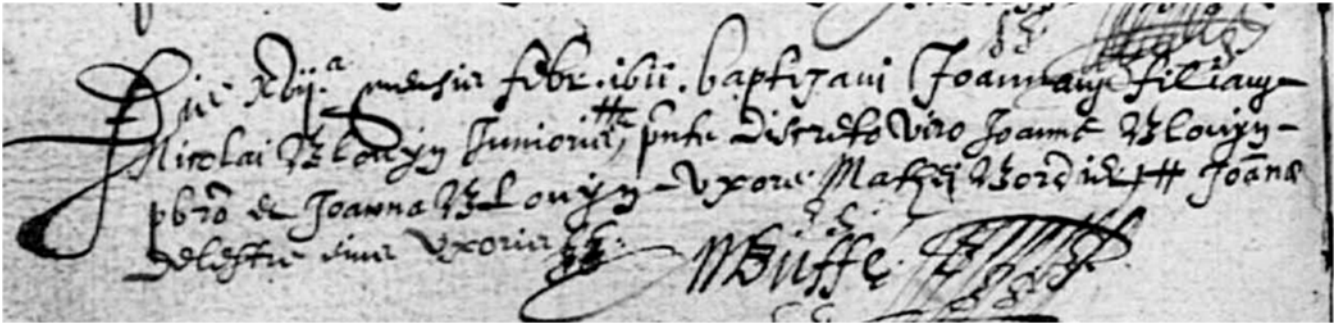 Die xvij.a mensis febr. 1611. baptizavi Joannam filiam
Nicolai Blouyn Junioris, # pnte discreto viro Joanne Blouyn
pbro et Joanna Blouyn uxore Mathei # Joanne
Delestre eius uxoris
Buffe